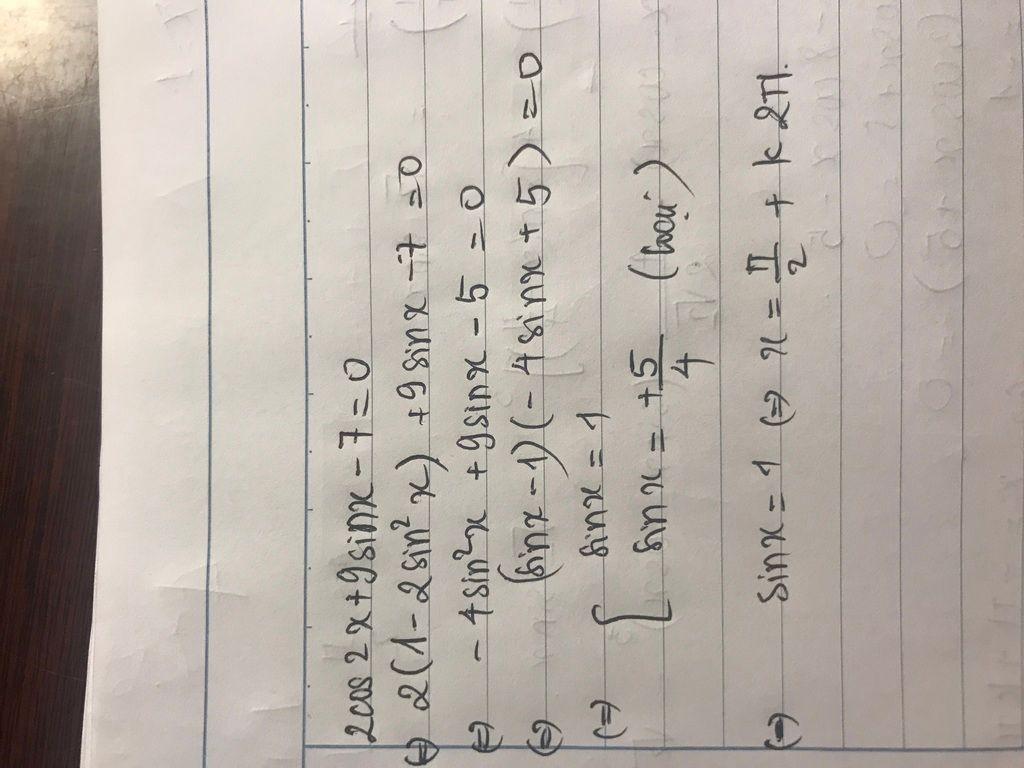 2cos2x+9sinx-7=0
(=) 2(1-2sin²x)+9sinx-7=0
(=) -4sin²x+9sinx-5=0
(=) (sinx-1)(-4sinx+5)=0
(=) [ sinx=1
sinx=+5/4 (loại)
(=) sinx=1 (=) x=π/2+k2π.